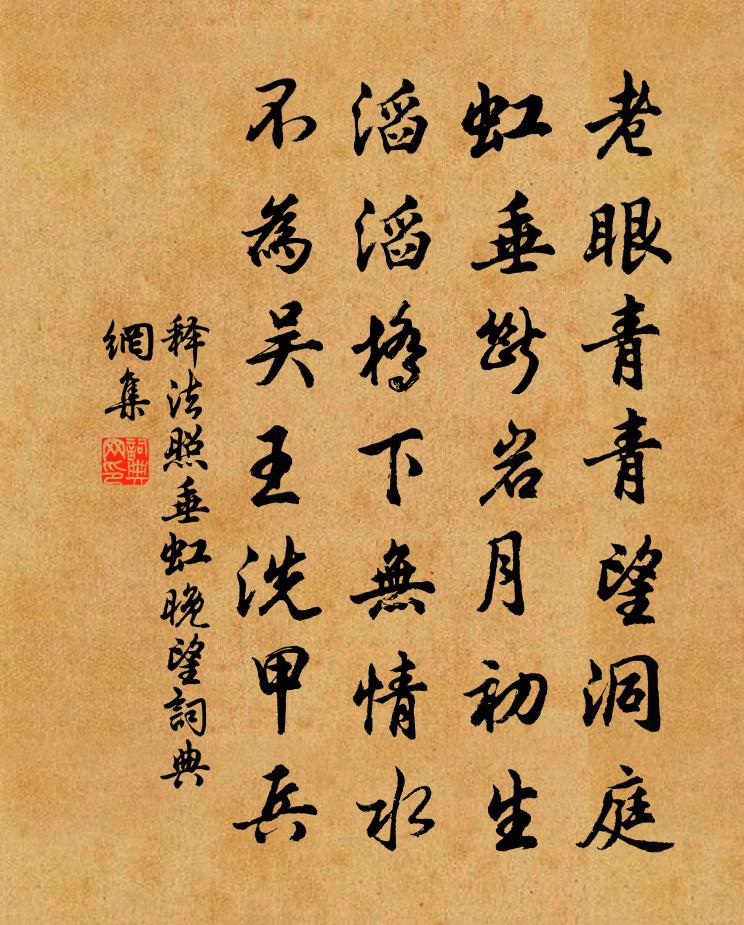 老眼青青望洞庭
虹垂断岩月初生
滔滔橋下無情水
不為吴王洗甲兵
释法照垂虹晚望詞典
網集
詞典
网印